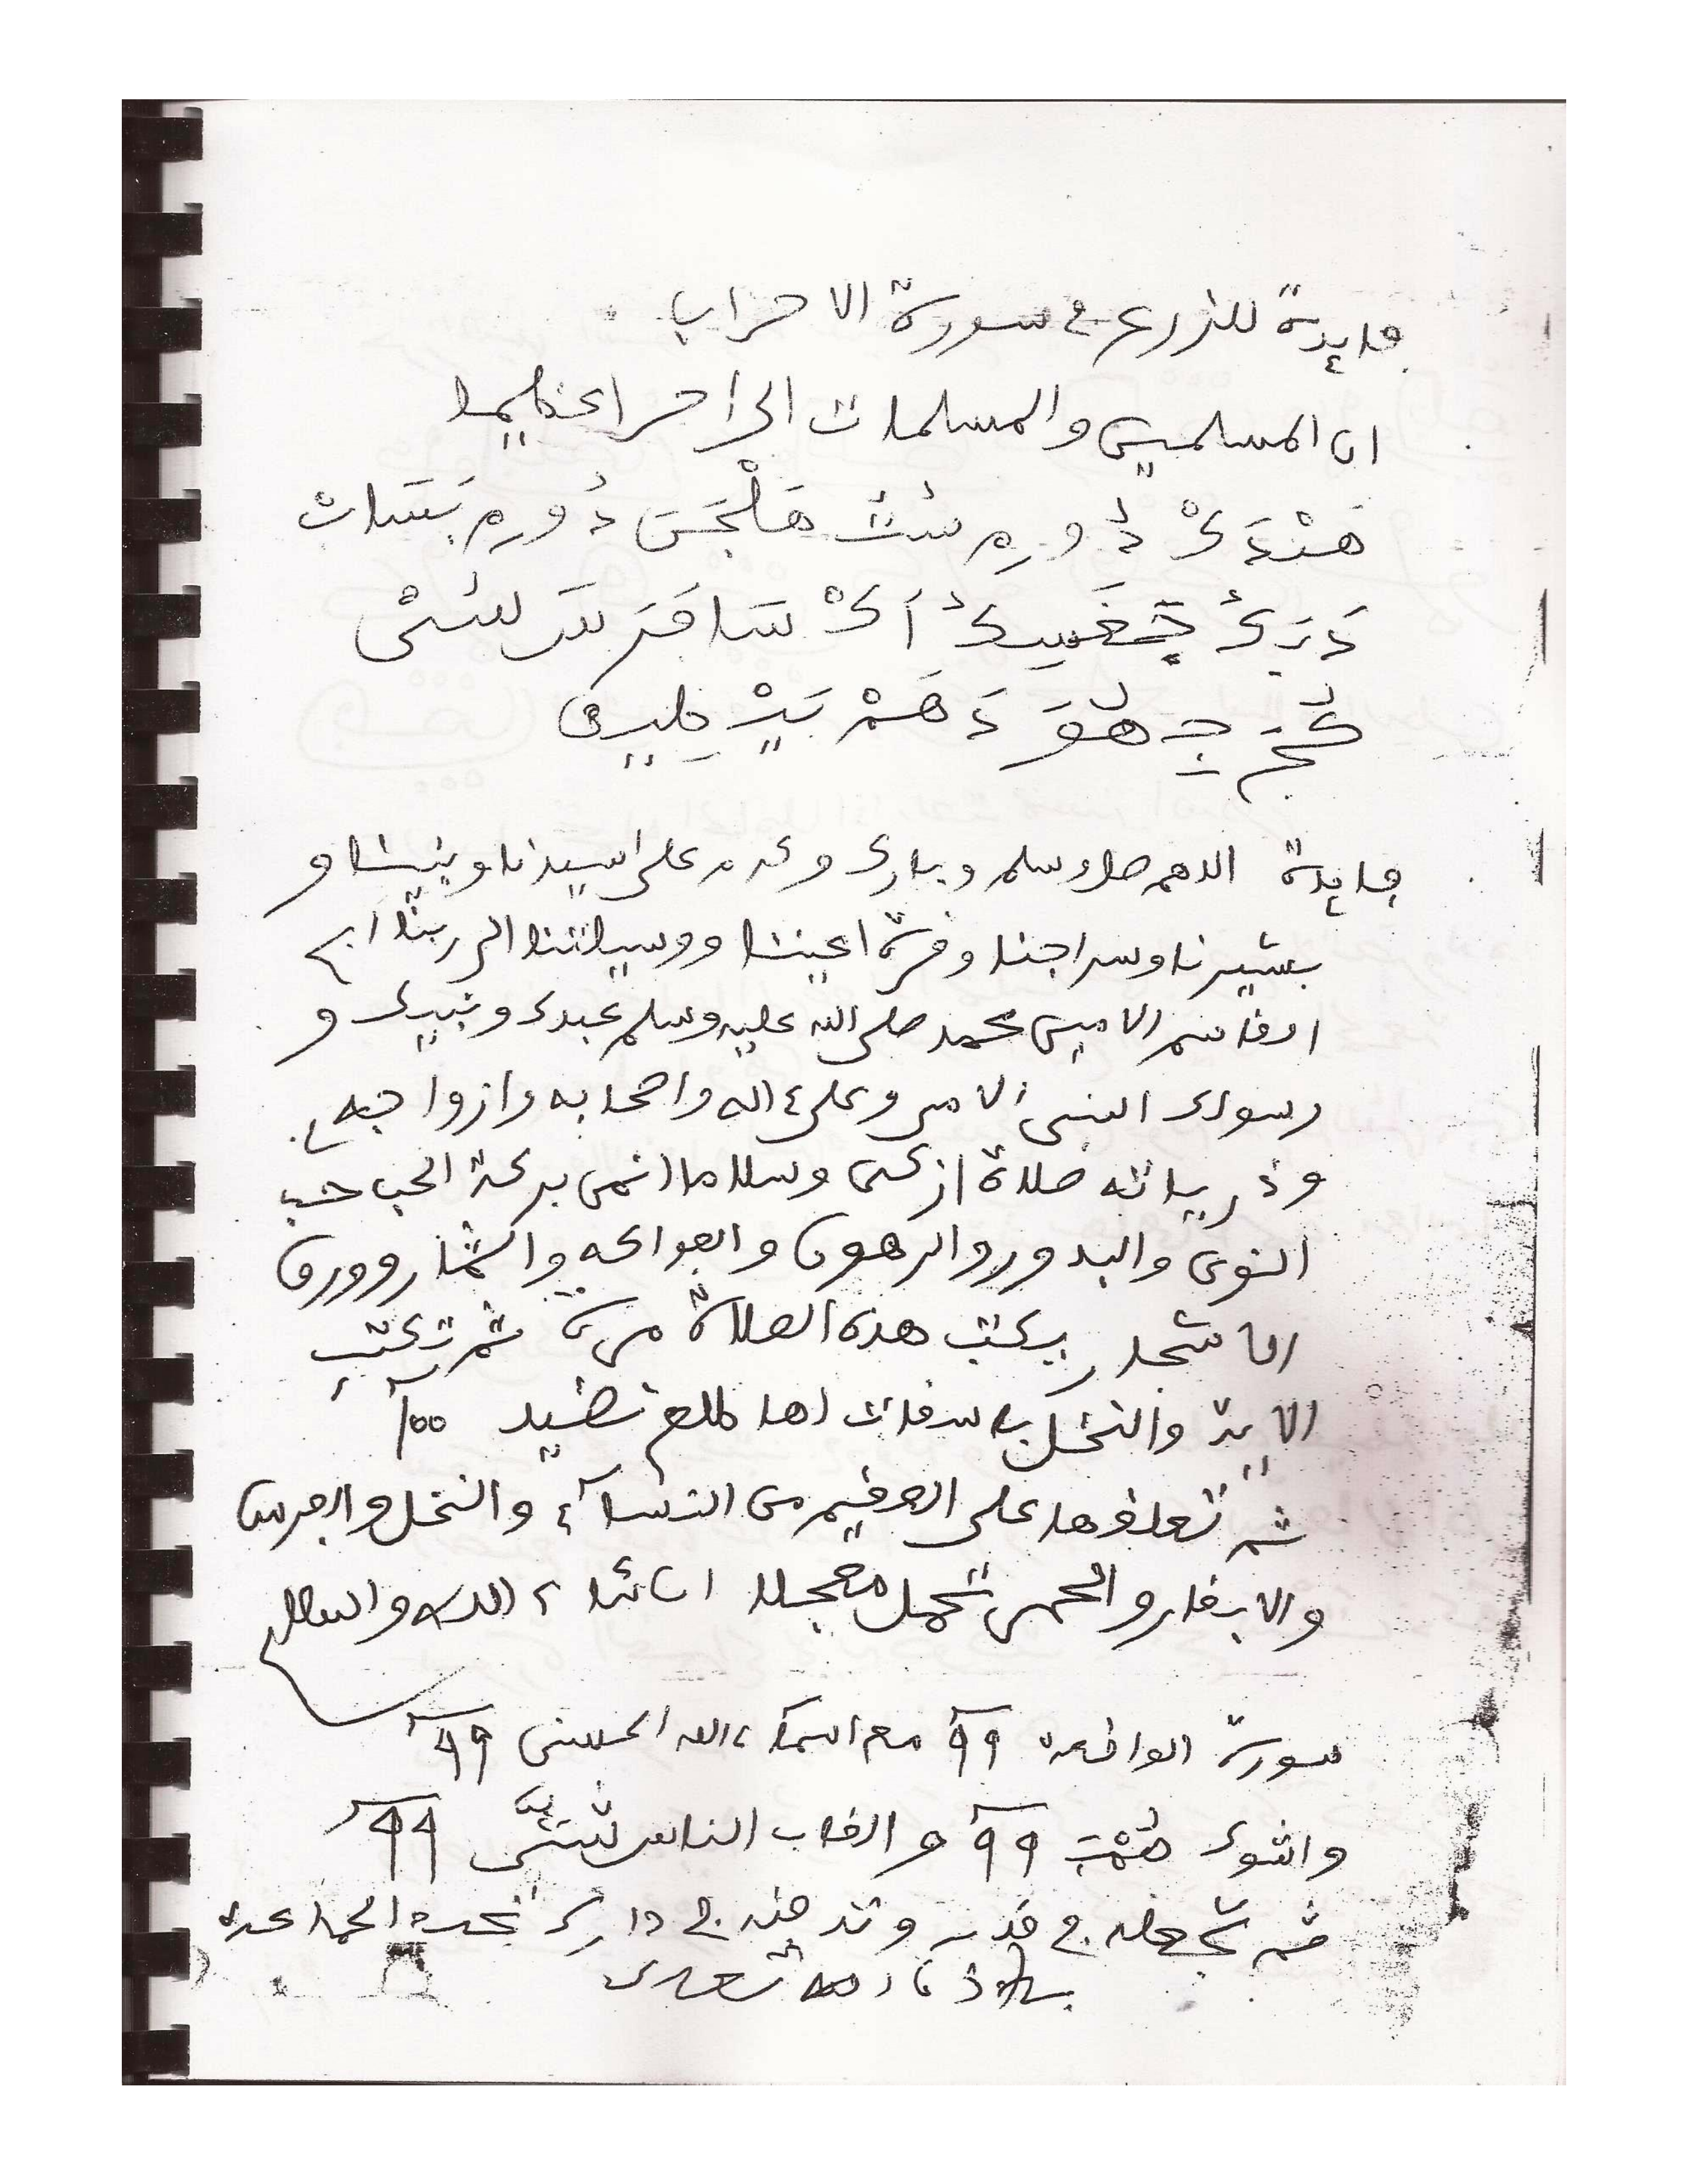 فايدة للزرع في سورة الاحزاب
ان المسلمين والمسلمات الى اجرا عظيما
هَنْدَكْ دُورِ سُتْ هَلْجَسَ دُورِ بَسَات
دَرَكُ أَكْ سَافَرَ
دَهَمْ بَيْدْ
فايدة اللهم صل وسلم وبارك وكرم على سيدنا ونبينا و
بشيرنا وسراجنا وقرة اعيننا ووسيلتنا الى ربنا ابي
القاسم الامين محمد صلى الله عليه وسلم عبدك ونبيك و
رسولك النبي الامي وعلى ءاله واصحابه وازواجه
وذرياته صلاة ازكى وسلاما انمى بركة الحب حب
النوى والبدور والزهور والفواكه والثمار وورق
الاشجار يكتب هذه الصلاة مرة ثم تكتب
الاية والنخل باسقات لها طلع نضيد ١٠٠
ثم تعلقها على العقيم من النساء والنخل والفرس
والابقار والحمير تحمل معجلا ان شاء الله والسلام
سورة الواقعة ٩٩ مع اسماء الله الحسنى ٩٩
واشوك ٩٩ والقاب الناس ٩٩
ثم تجعله في قدر وتدفنه في دارك تجد الجماعة
باذن الله تعالى